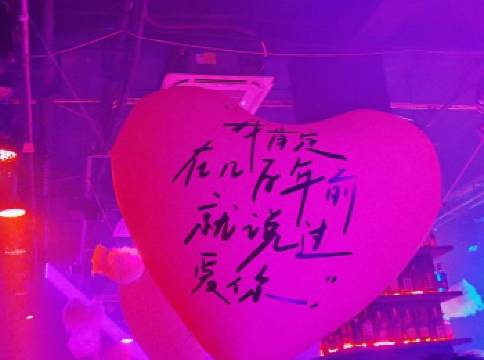 "我肯定
在几百年前
就说过
爱你.."